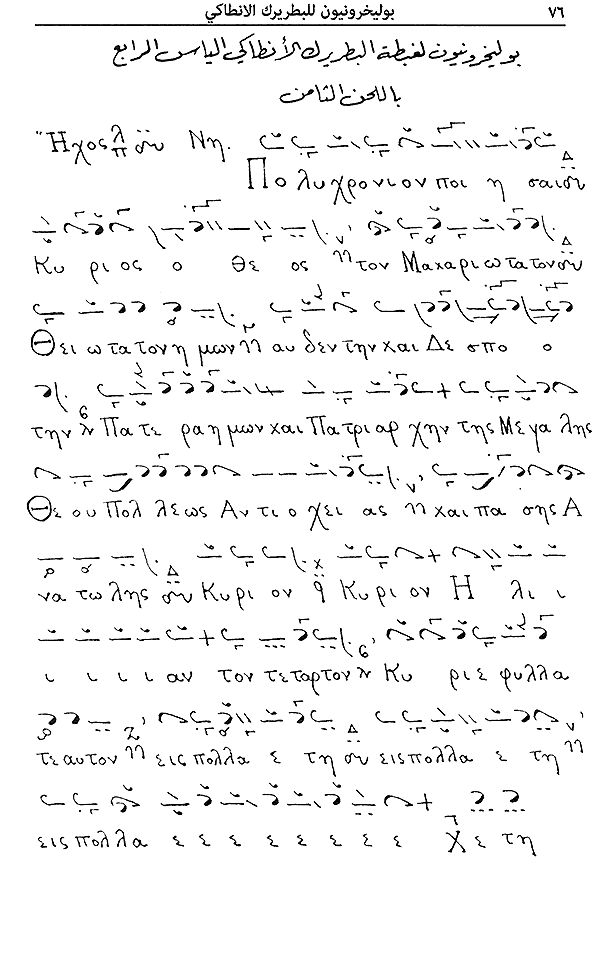 بوليخرونيون للبطريرك الانطاكي ٧٦
بوليخرونيون لغبطة البطريرك الأنطاكي الياس الرابع
باللحن الثامن
Ἦχος λ π δ Νη.
Πο λυ χρο νι ον ποι η σαι
Κυ ρι ος ο θε ος τον Μα χα ρι ω τα τον
Θει ω τα τον η μων αυ θεν την και Δε σπο ο
την Πα τε ρα η μων και Πα τρι αρ χην της Με γα λης
Θε ου Πολ λεως Αν τι ο χει ας και πα σης Α
να τω λης Κυρι ον Κυρι ον Η λι ι
ι ι ι ι αν τον τεταρτον Κυ ριε φυλλα
τε αυτον εις πολλα ε τη εις πολλα ε τη
εις πολλα ε ε ε ε ε ε ε ε χ ε τη